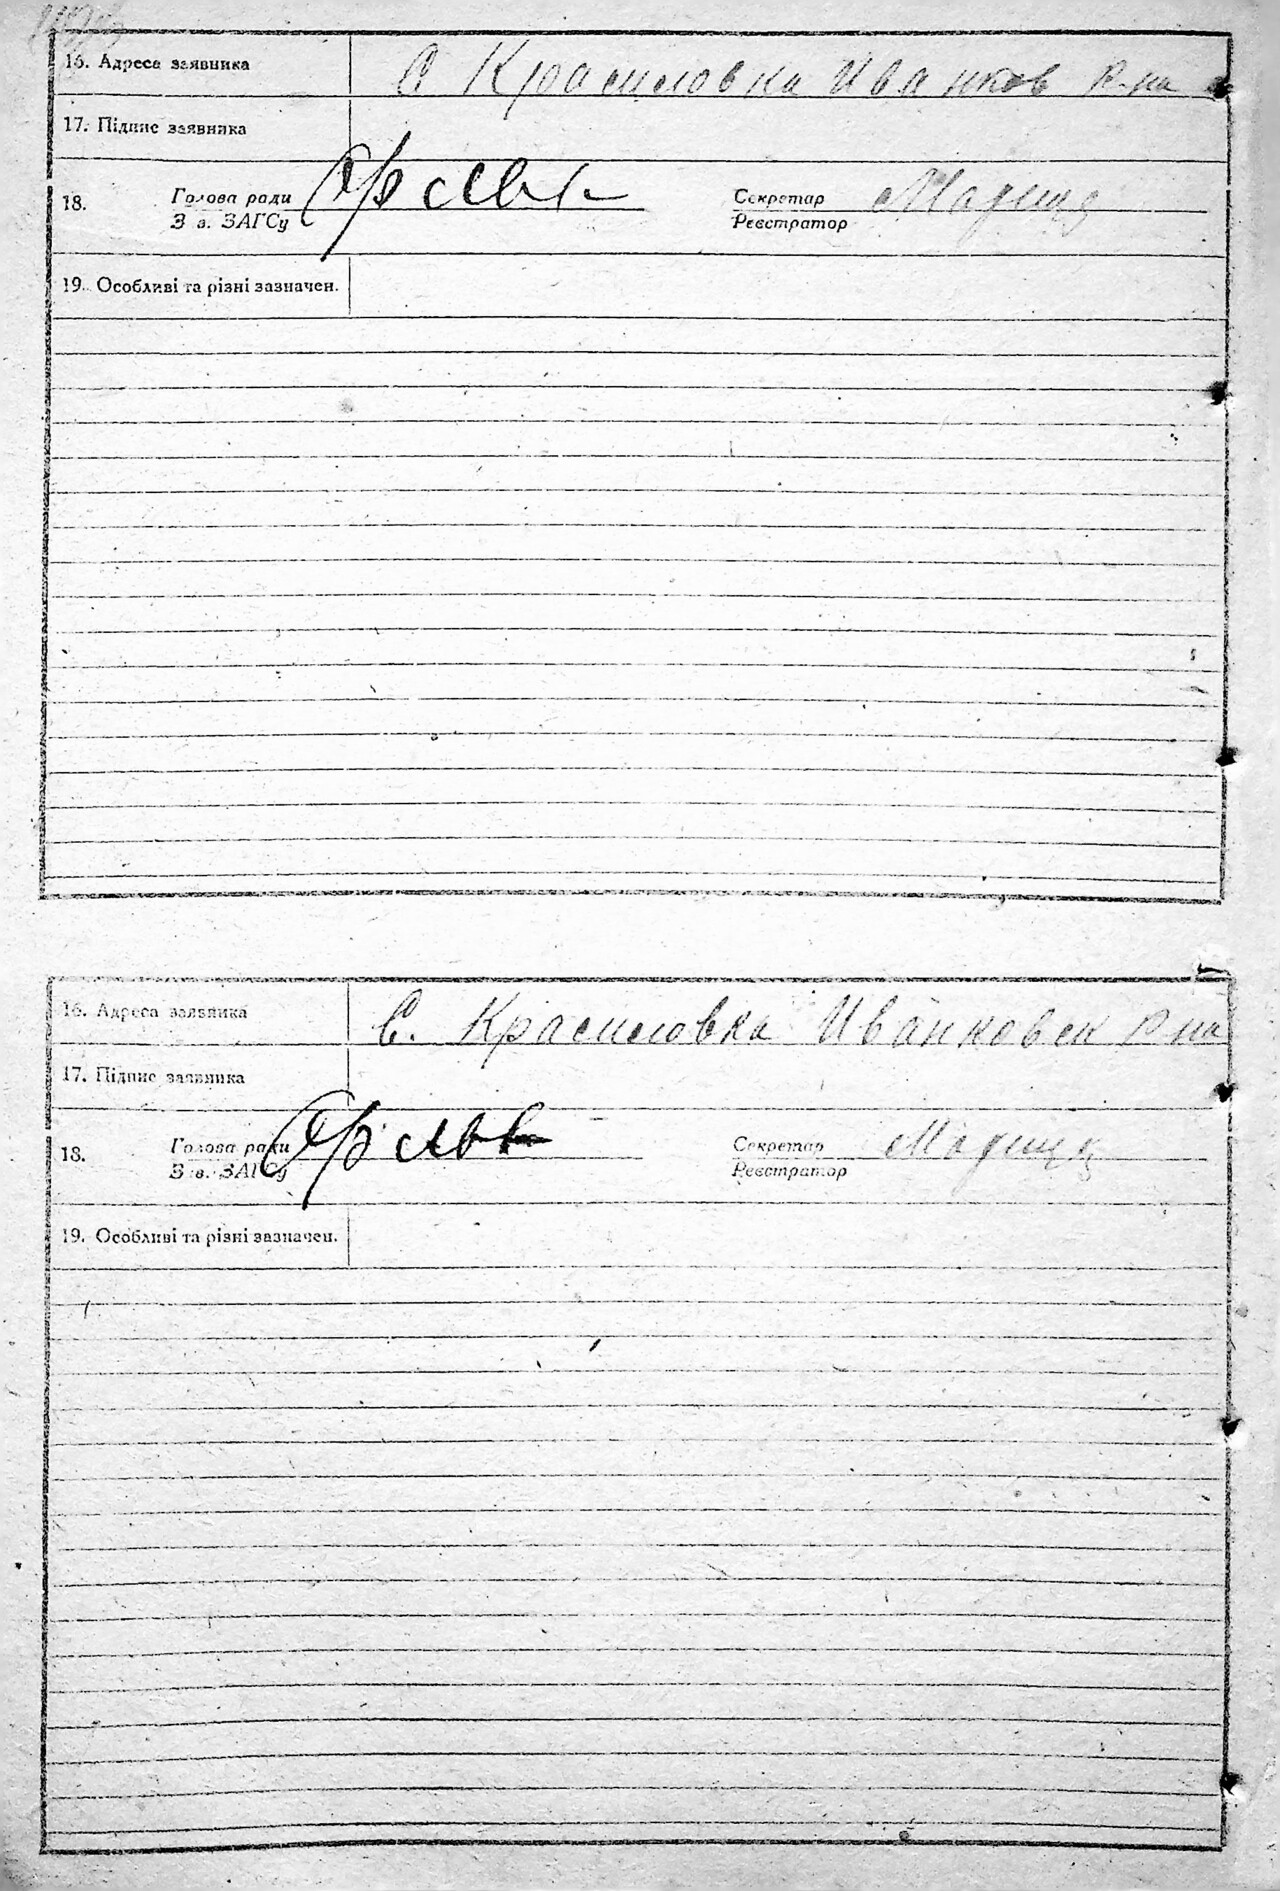 16. Адреса заявника С Красиловка Иванков р-на
17. Підпис заявника
18. Голова ради Секретар
Зав. ЗАГСу Реєстратор
19. Особливі та різні зазначен.
16. Адреса заявника С. Красиловка Иванковск р-на
17. Підпис заявника
18. Голова ради Секретар
Зав. ЗАГСу Реєстратор
19. Особливі та різні зазначен.